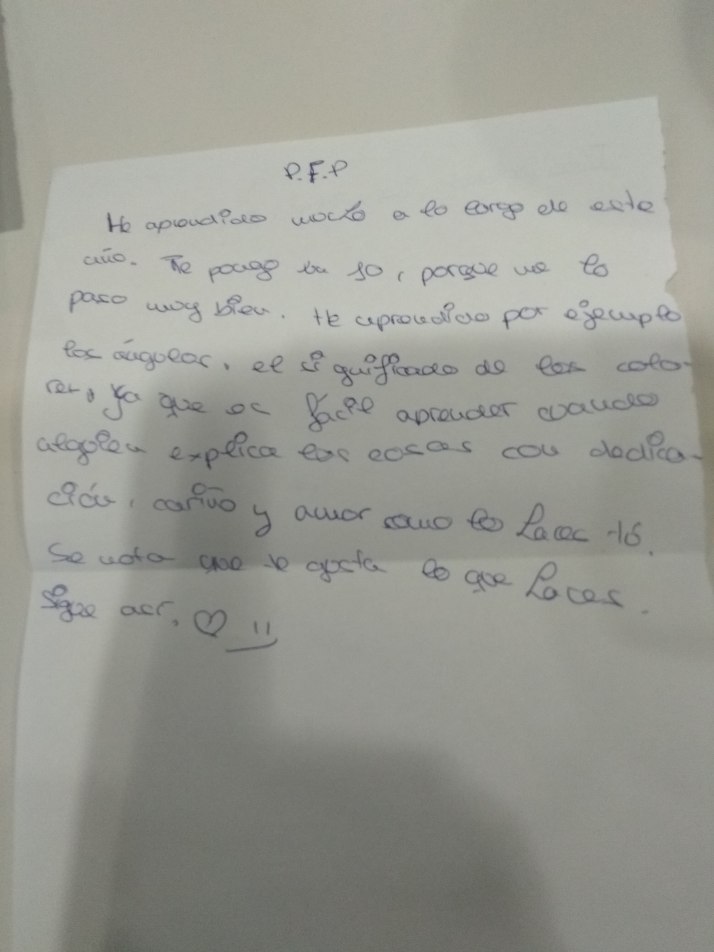 P.F.P
He aprendido mucho a lo largo de este
año. Te pongo un 10, porque me lo
paso muy bien. He aprendido por ejemplo
los ángulos, el significado de los colo-
res, ya que es fácil aprender cuando
alguien explica las cosas con dedica-
ción, cariño y amor como lo haces tú.
Se nota que te gusta lo que haces.
Sigue así. ♡